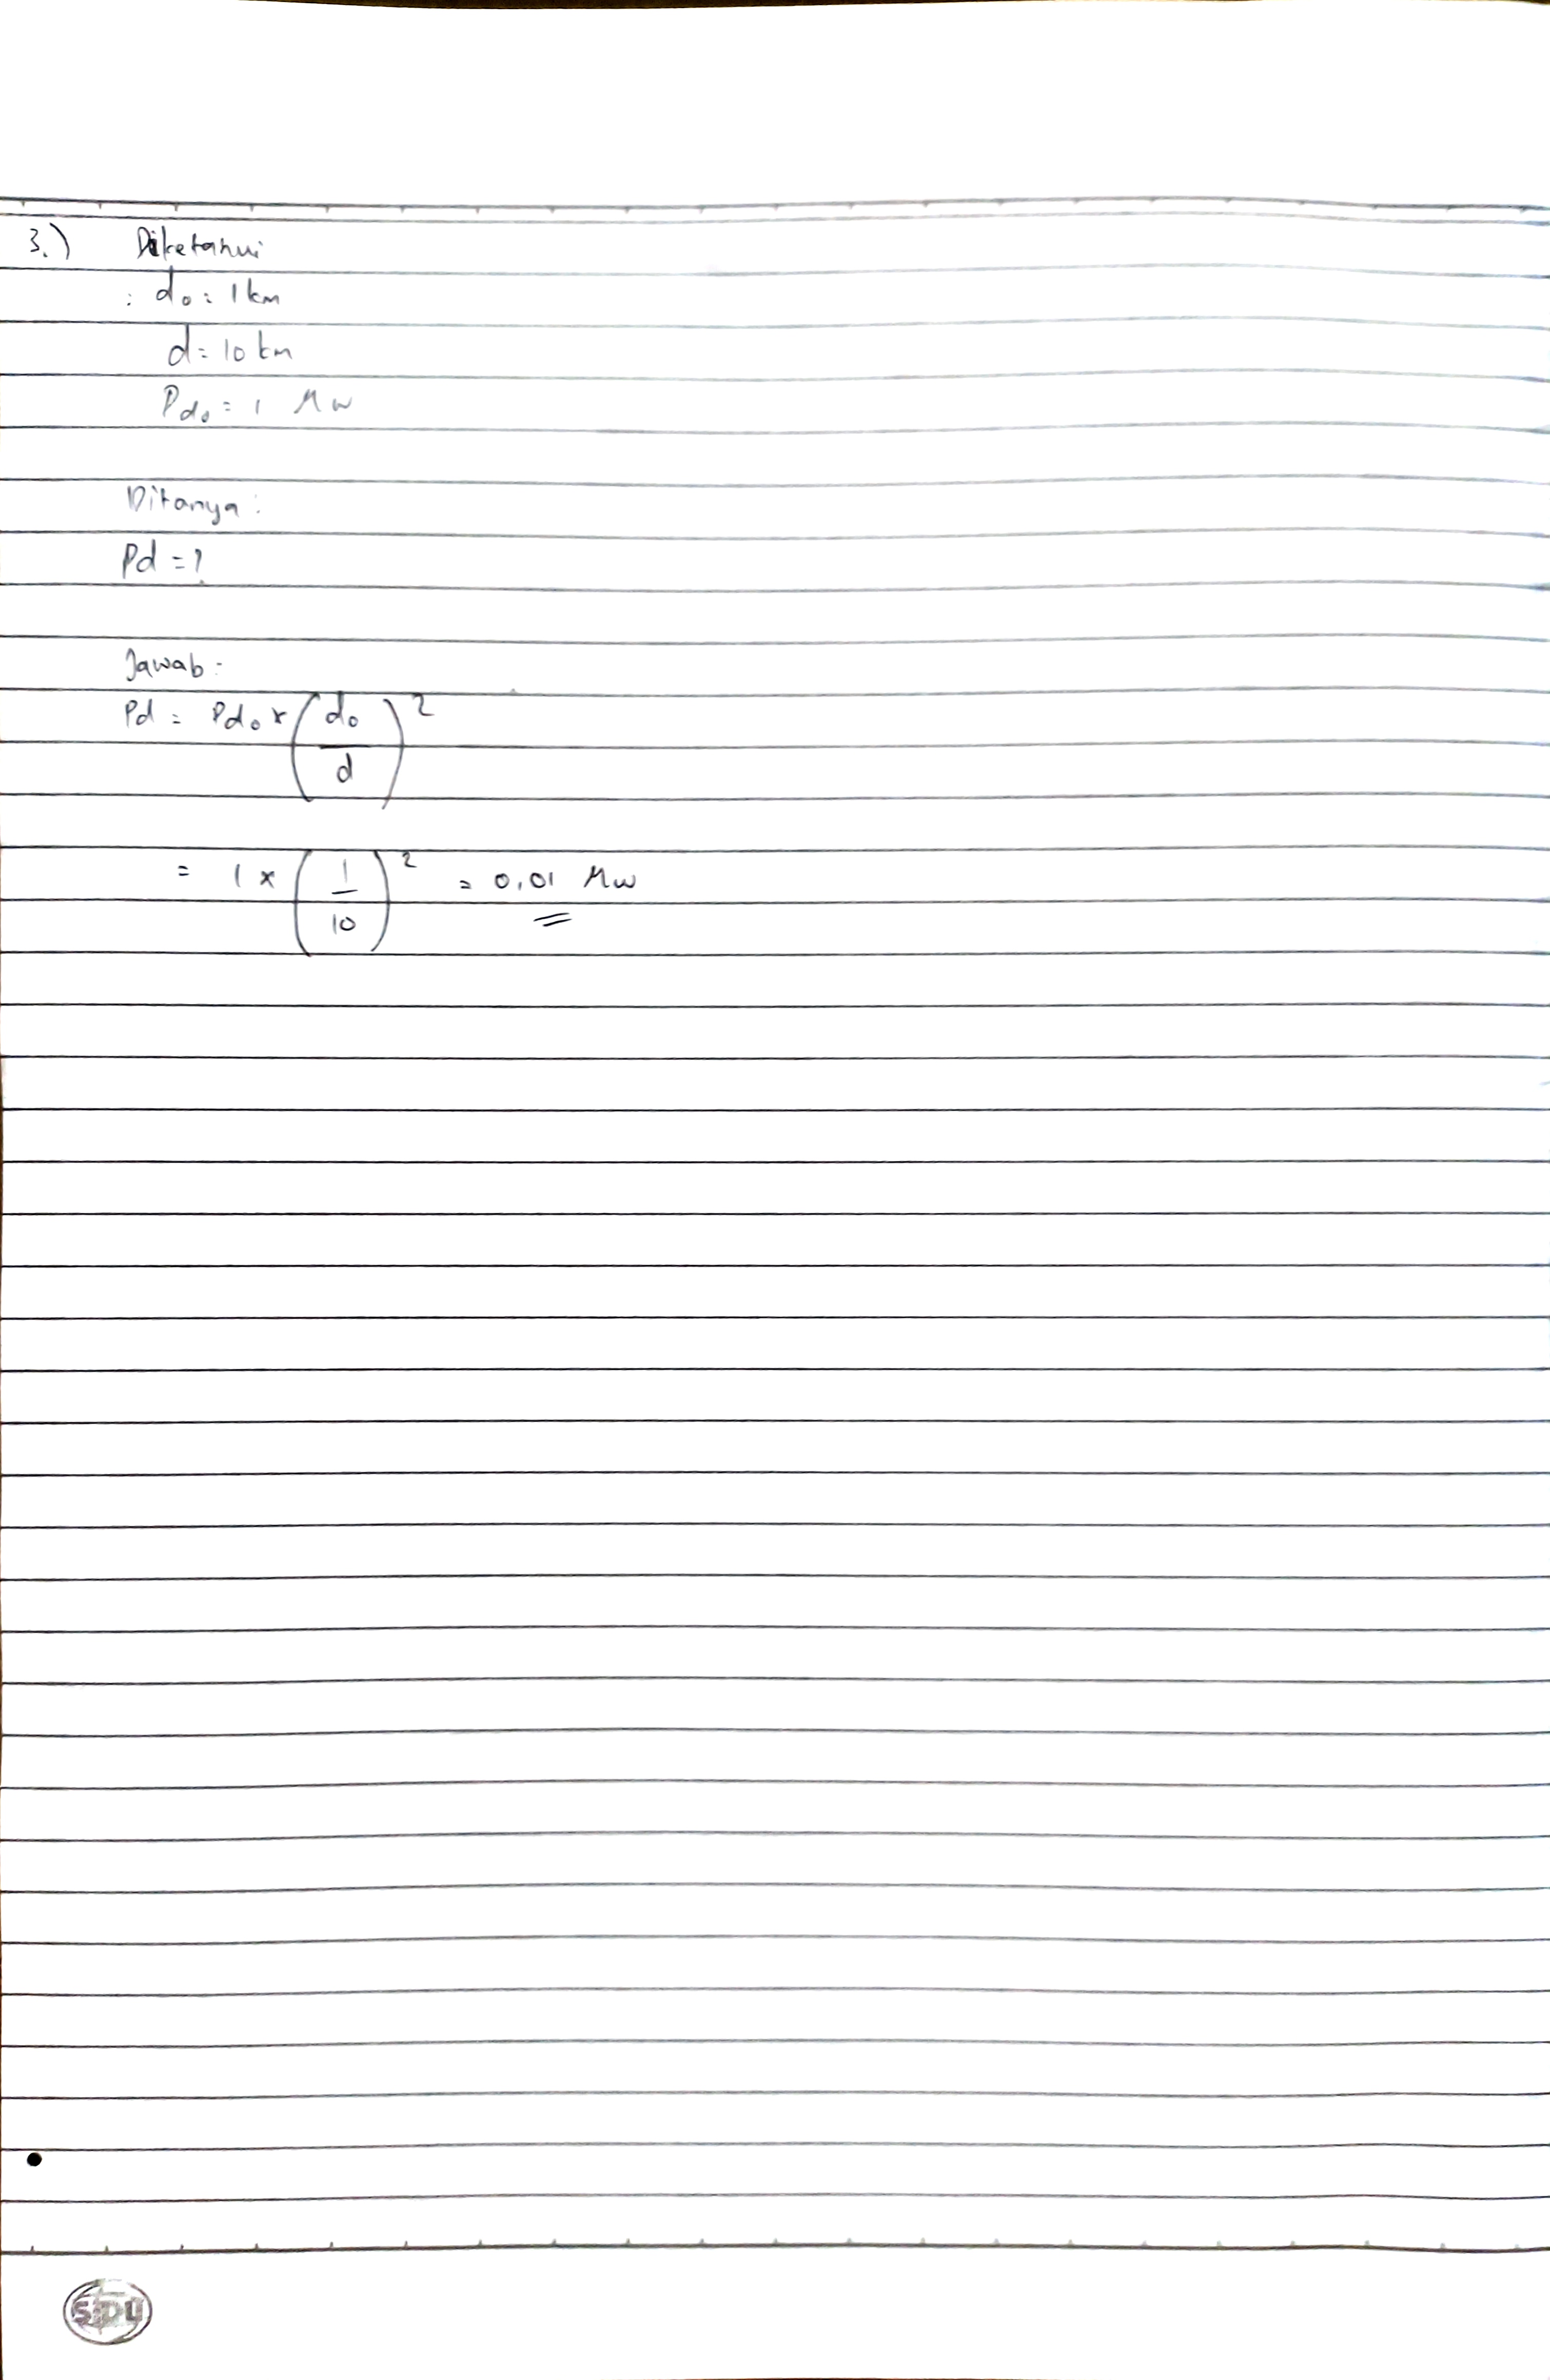 3.) Diketahui
: d₀ = 1 km
d = 10 km
Pd₀ = 1 Mw
Ditanya :
Pd = ?
Jawab :
Pd = Pd₀ x (d₀/d)²
= 1 x (1/10)² = 0,01 Mw
SIDU